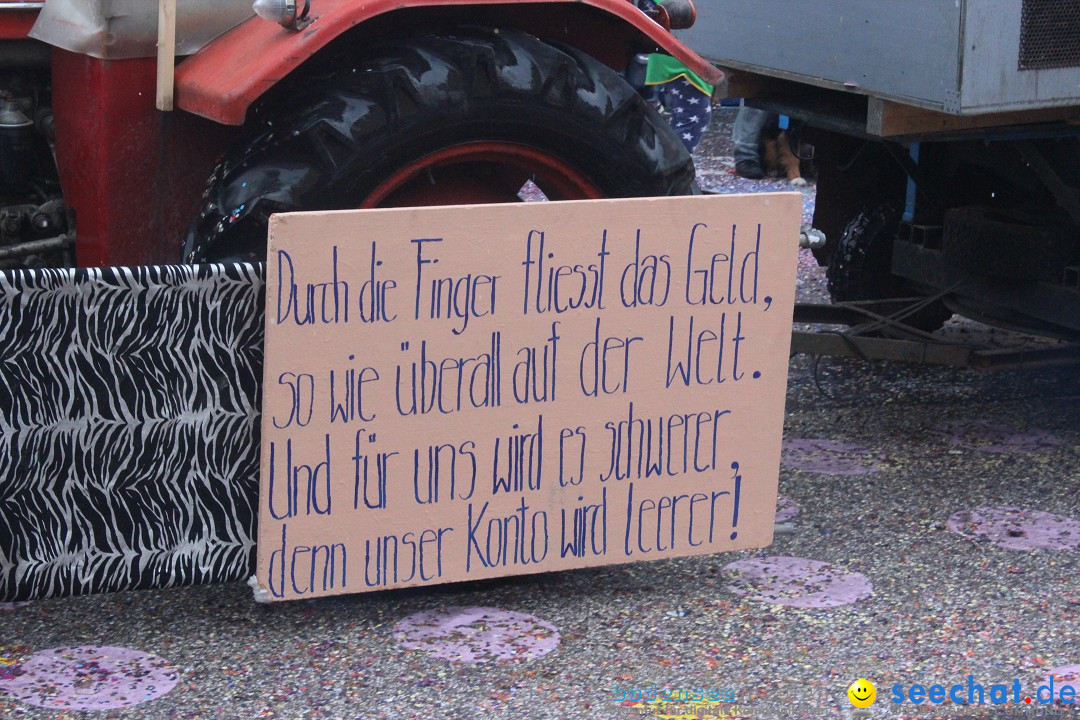 Durch die Finger fliesst das Geld,
so wie überall auf der Welt.
Und für uns wird es schwerer,
denn unser Konto wird leerer!
seechat.de